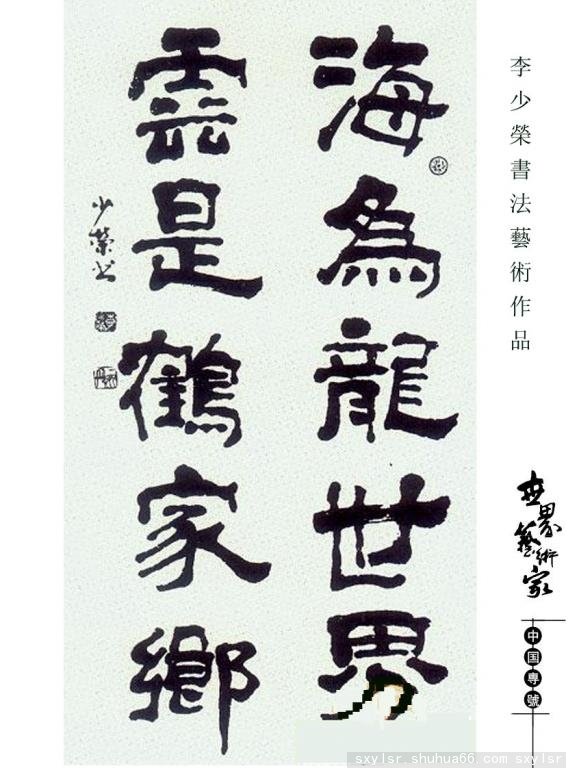 海為龍世界
雲是鶴家鄉
少榮書
李少榮書法藝術作品
世界藝術家
中国專號
sxylsr.shuhua66.com sxylsr